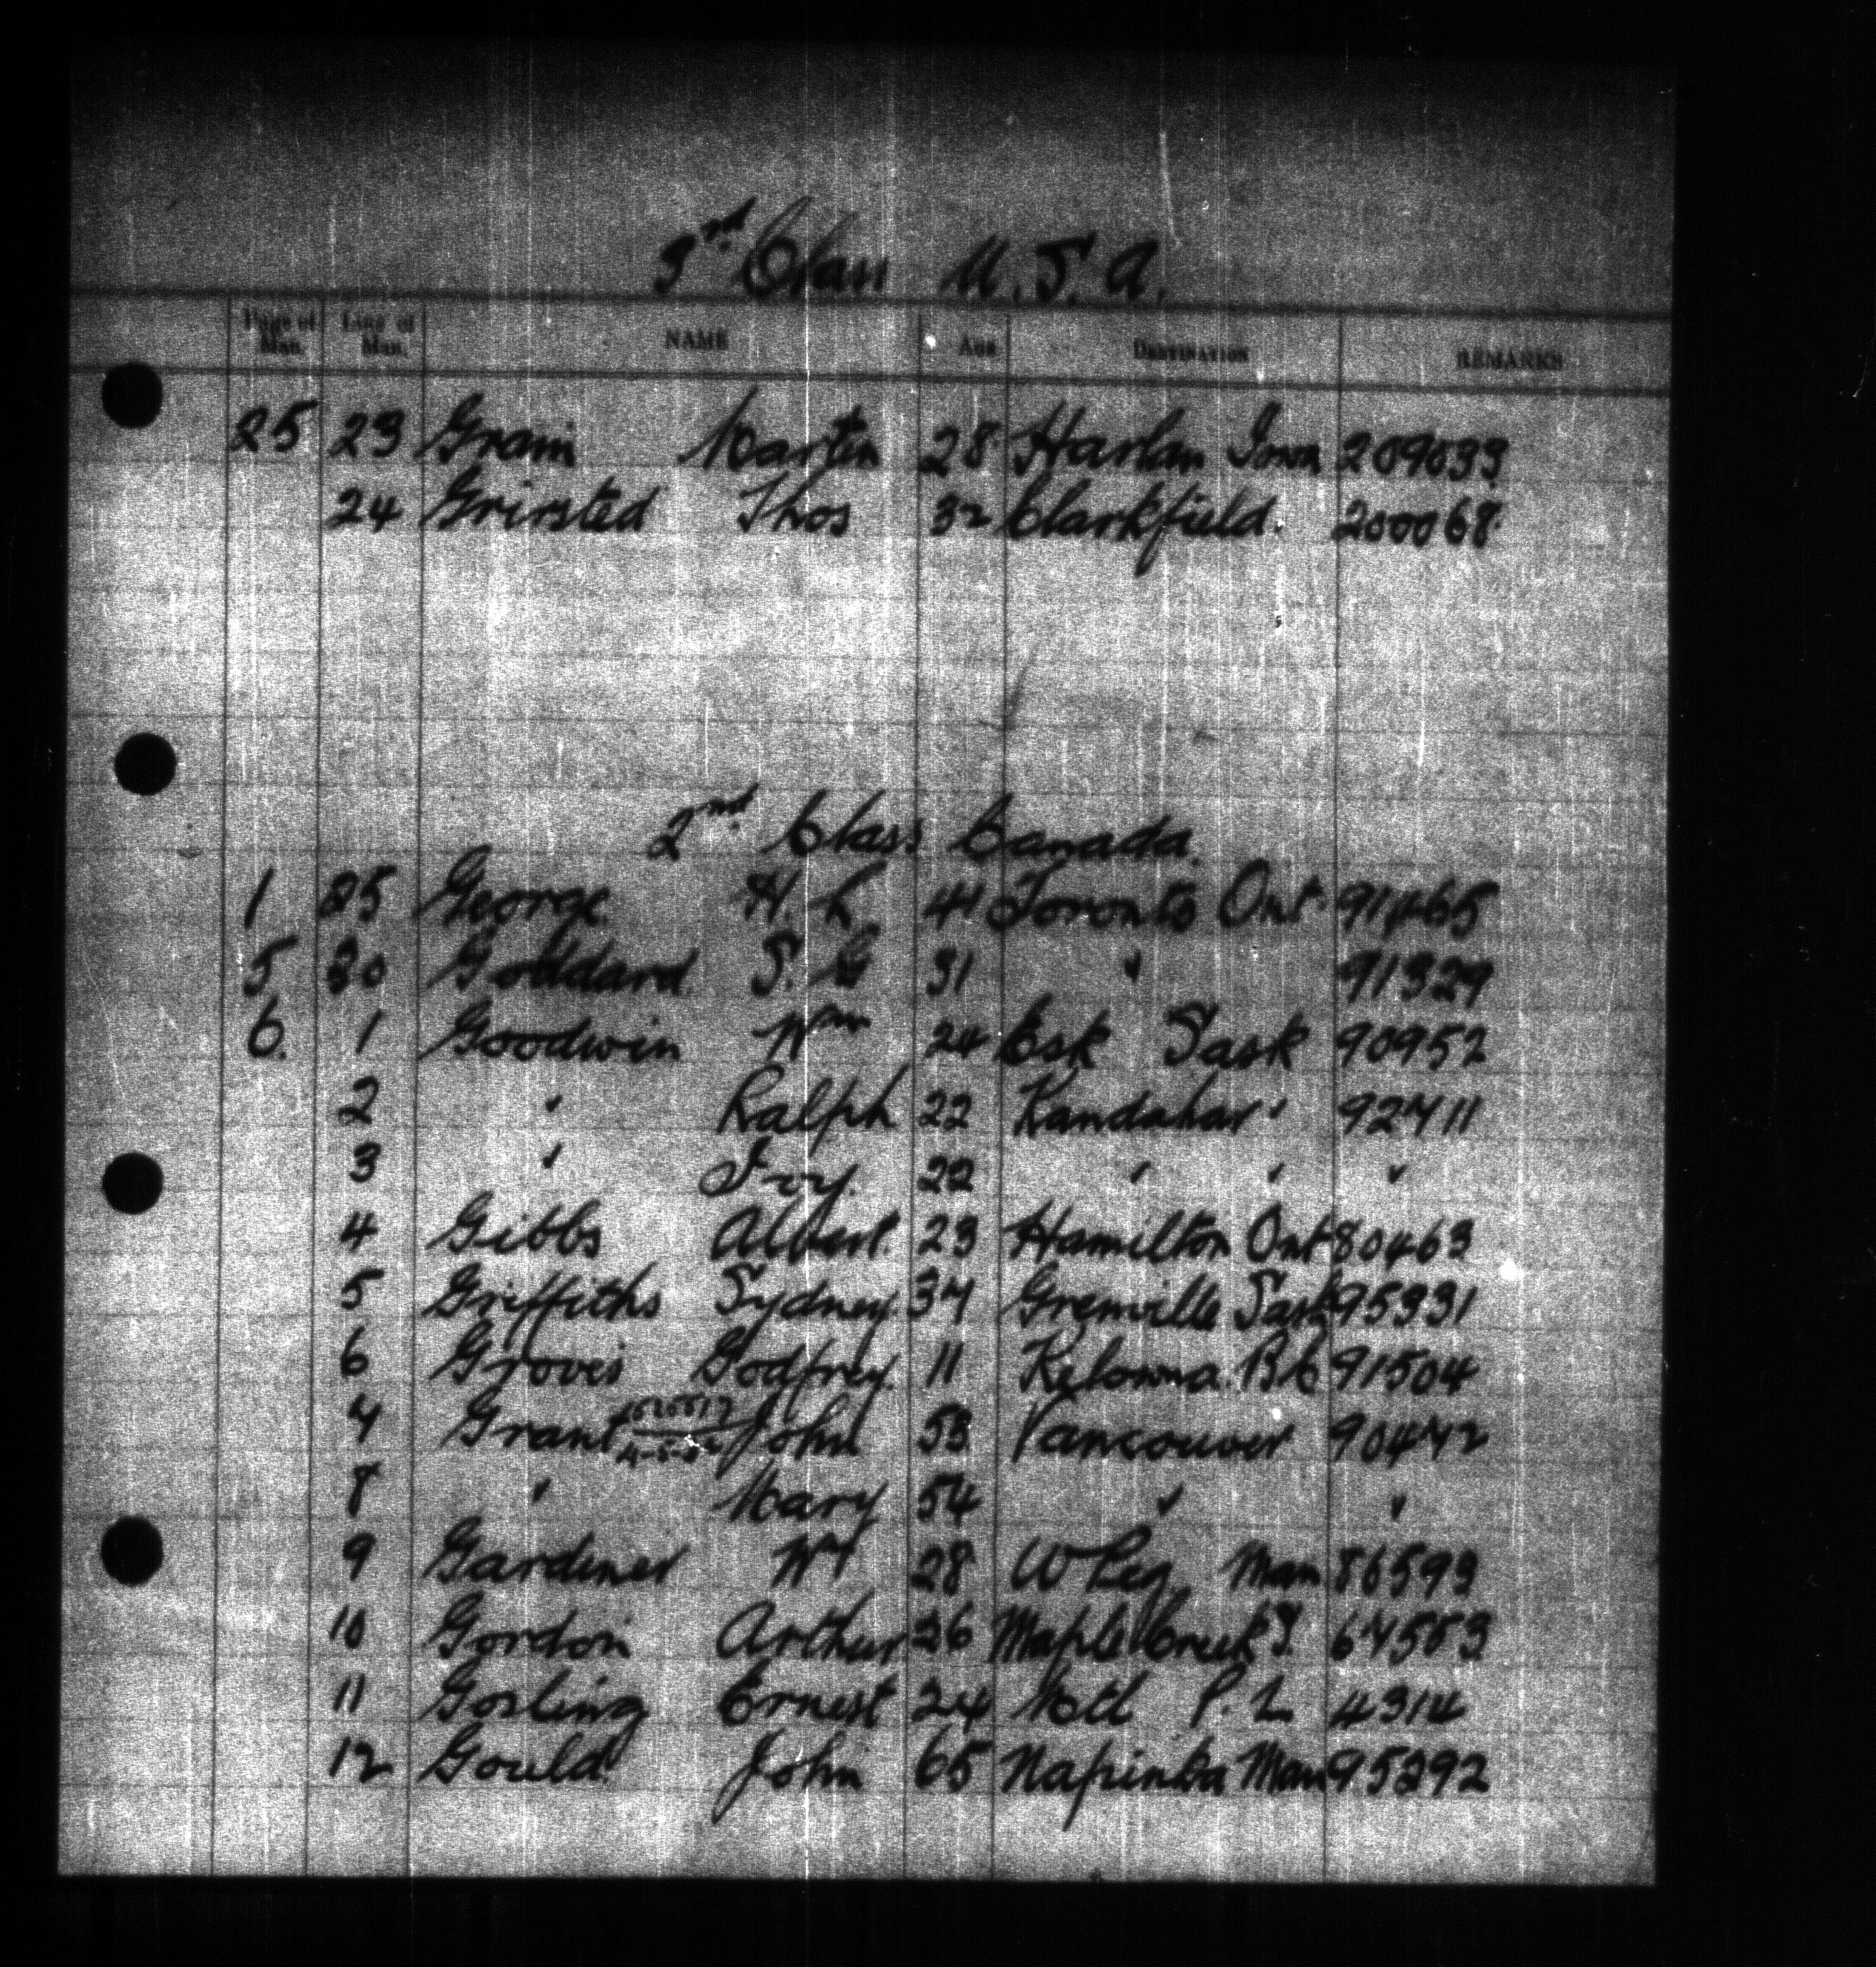 3rd Class U.S.A.
Page of Man. Line of Man. NAME Age DESTINATION REMARKS
25 23 Grain Martin 28 Harlan Iowa 209033
24 Grinsted Thos 32 Clarkfield. 200068
2nd Class Canada.
1 25 George H. L 41 Toronto Ont. 91465
5 30 Goddard S. G 31 " 91329
6. 1 Goodwin Wm 24 Esk Sask 90952
2 " Ralph 22 Kandahar " 92711
3 " Ivy. 22 " " "
4 Gibbs Albert. 23 Hamilton Ont 80463
5 Griffiths Sydney 37 Grenville Sask 95331
6 Groves Godfrey. 11 Kelowna. BC 91504
7 Grant John 53 Vancouver 90472
8 " Mary 54 " "
9 Gardiner Wt 28 WPeg Man 86593
10 Gordon Arthur 26 Maple Creek S. 67583
11 Gosling Ernest 24 Mtl P. L 4314
12 Gould John 65 Napinka Man 95292